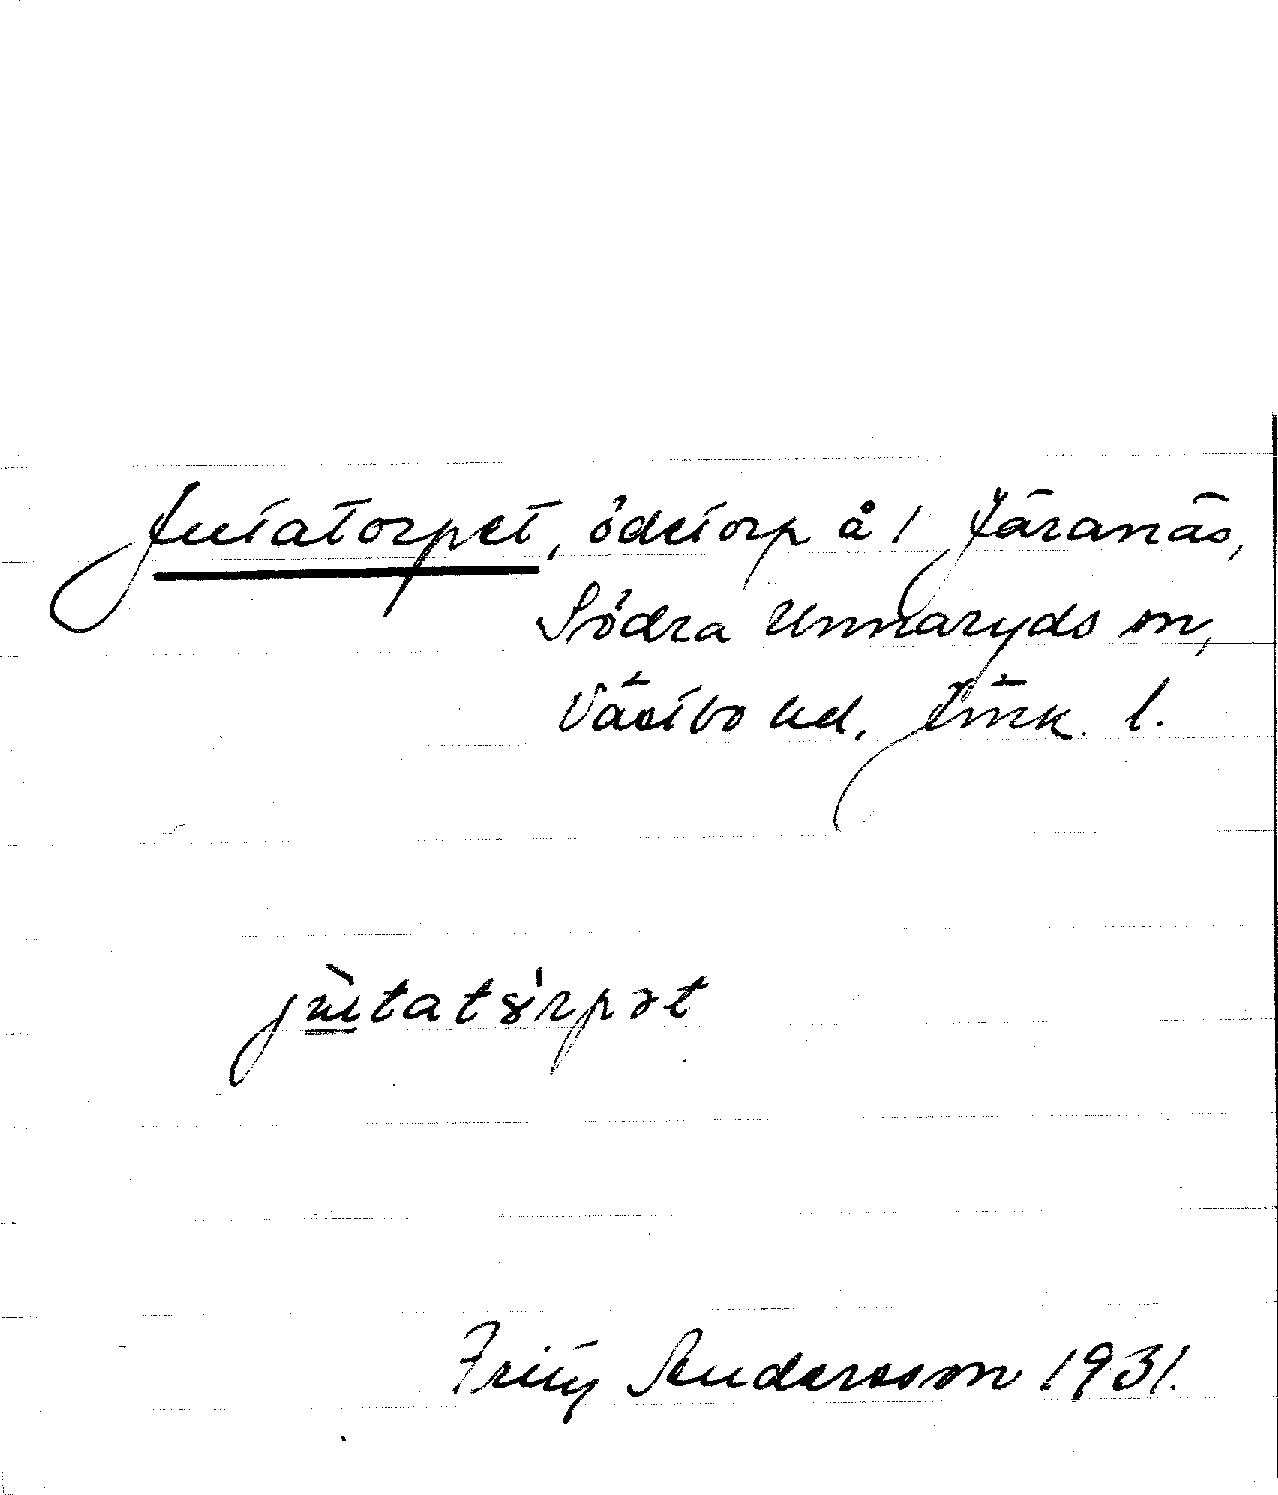 Jutatorpet, ödetorp å 1 Järanäs,
Södra Unnaryds sn,
Västbo hd, Jmk. l.
jùtatór̥pət
Fritz Andersson 1931.